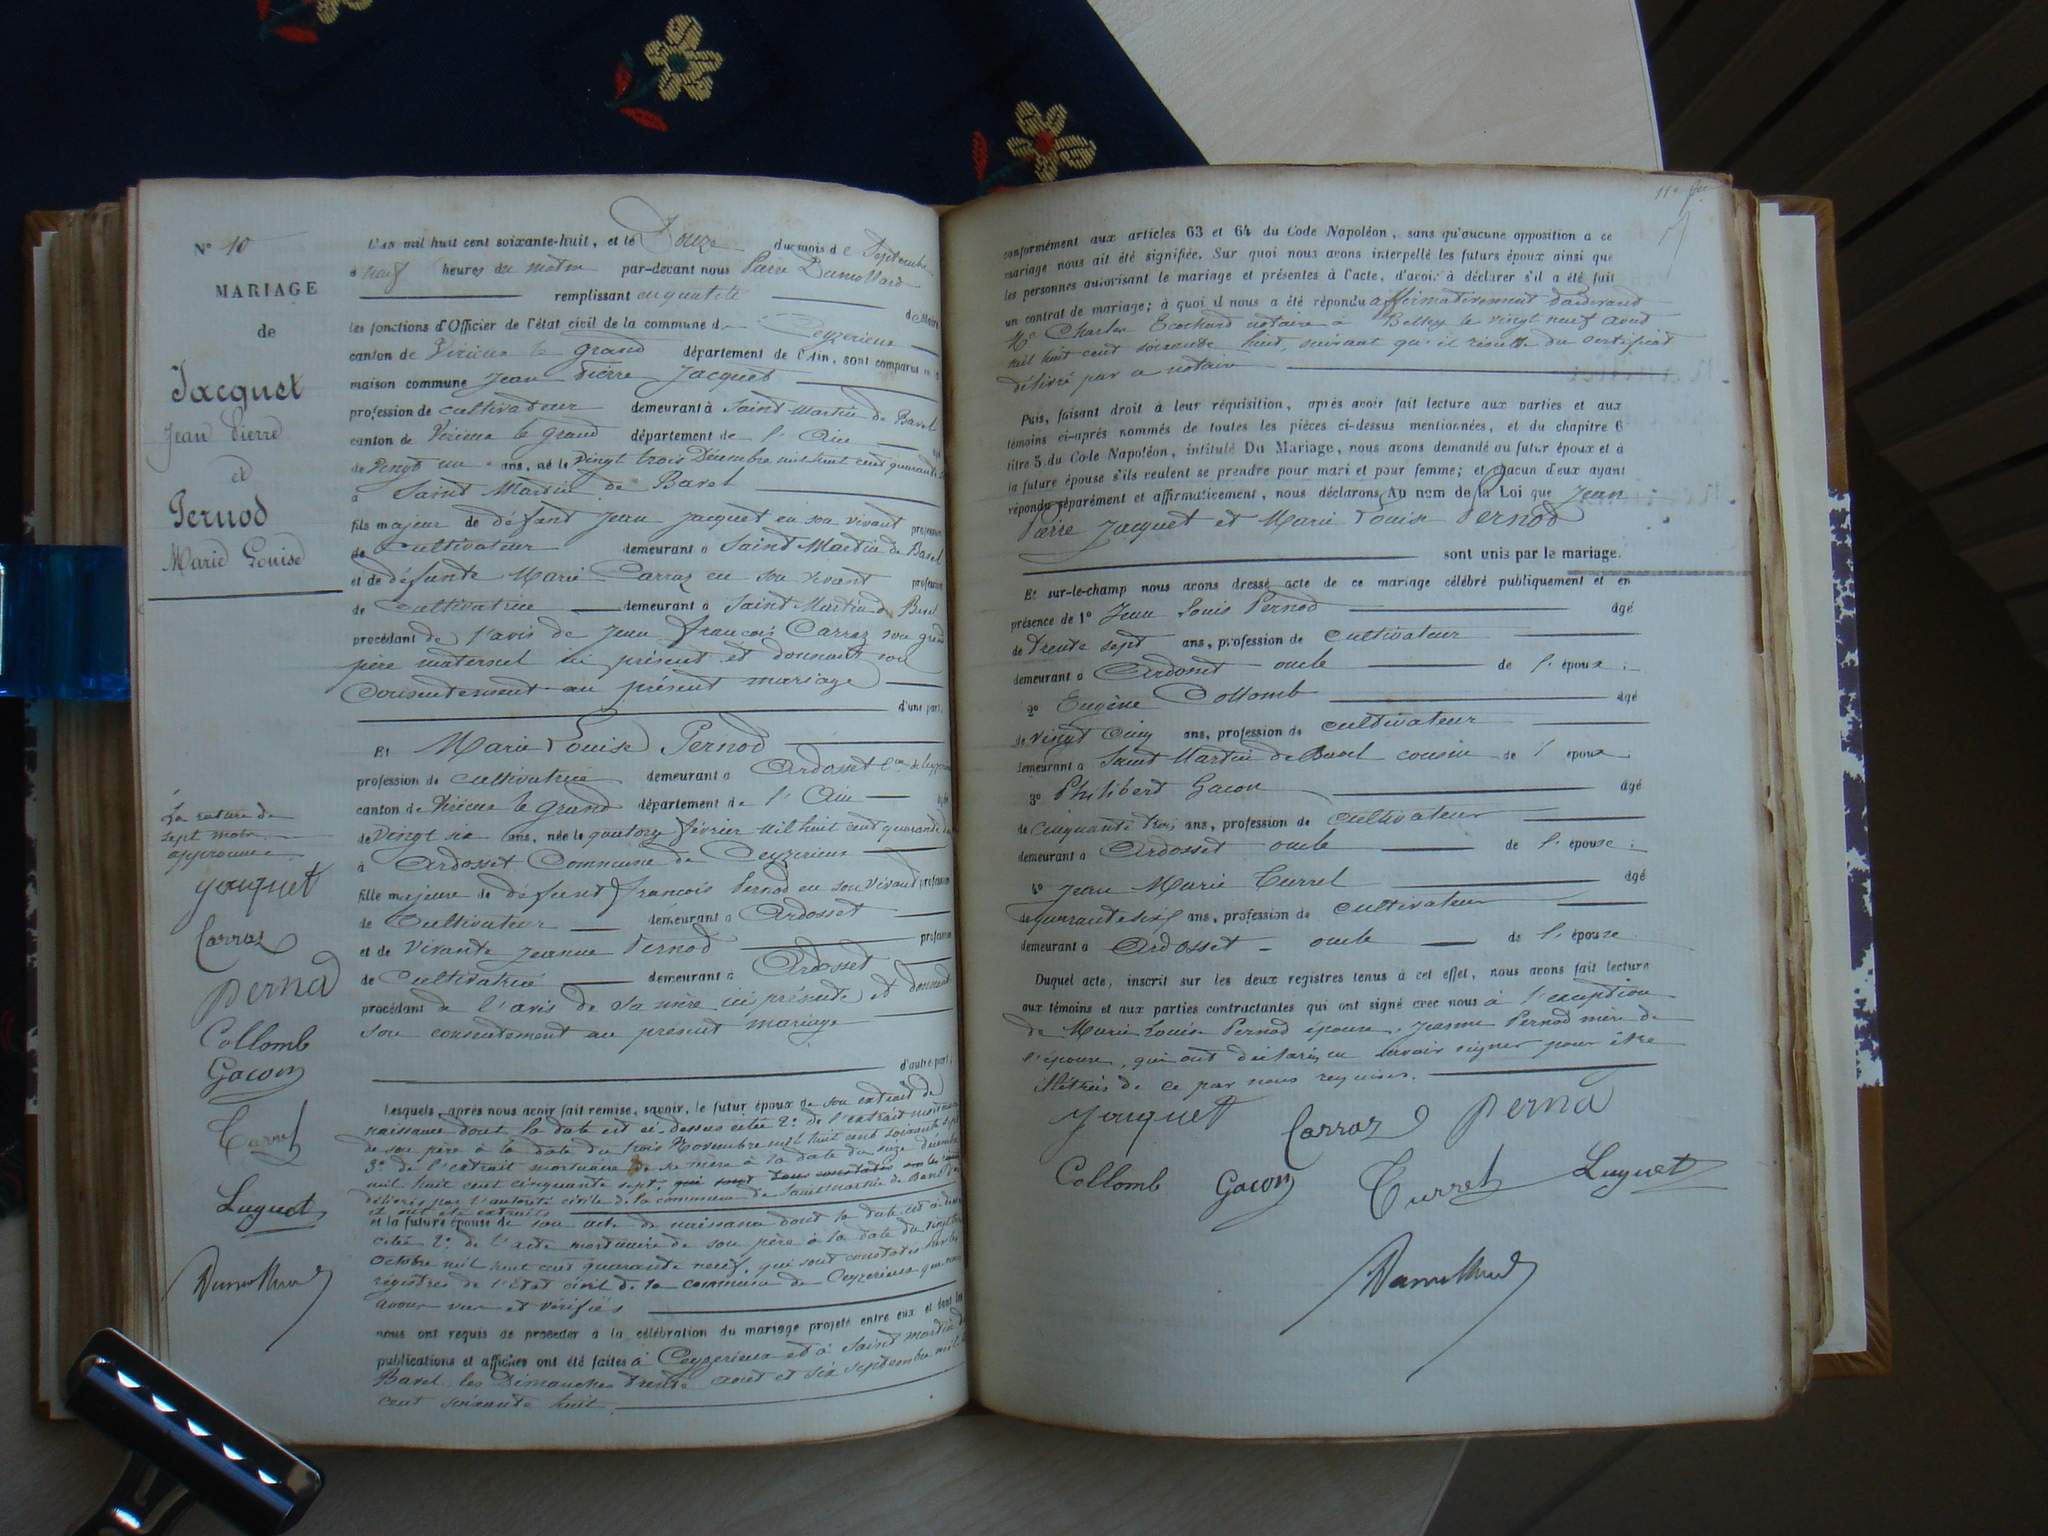 N° 10
MARIAGE
de
Jacquet
Jean Pierre
et
Pernod
Marie Louise
La rature de
sept mots
approuvée
Jacquet
Carraz
Pernod
Collomb
Gacon
Turrel
Luquet
Dumollard
L'an mil huit cent soixante-huit, et le Douze du mois de Septembre
à neuf heures du matin par-devant nous Pierre Dumollard
remplissant en qualité de Maire
les fonctions d'Officier de l'état civil de la commune de Ceyzerieux
canton de Virieu le grand département de l'Ain, sont comparus en la
maison commune Jean Pierre Jacquet
profession de cultivateur demeurant à Saint Martin de Bavel
canton de Virieu le grand département de l'Ain
de vingt un ans, né le vingt trois Décembre mil huit cent quarante
à Saint Martin de Bavel
fils majeur de défunt Jean Jacquet en son vivant profession
de Cultivateur demeurant à Saint Martin de Bavel
et de défunte Marie Carraz en son vivant profession
de Cultivatrice demeurant à Saint Martin de Bavel
procédant de l'avis de Jean François Carraz son grand
père maternel ici présent et donnant son
Consentement au présent mariage
d'une part,
Et Marie Louise Pernod
profession de cultivatrice demeurant à Ardosset Cne de Ceyzerieux
canton de Virieu le grand département de l'Ain âgée
de vingt six ans, née le quatorze février mil huit cent quarante deux
à Ardosset Commune de Ceyzerieux
fille majeure de défunt françois Pernod en son vivant profession
de Cultivateur demeurant à Ardosset
et de vivante Jeanne Pernod profession
de Cultivatrice demeurant à Ardosset
procédant de l'avis de sa mère ici présente et donnant
son consentement au présent mariage
d'autre part;
Lesquels, après nous avoir fait remise, savoir, le futur époux de son extrait de
naissance dont la date est ci-dessus citée 2° de l'extrait mortuaire
de son père à la date du trois Novembre mil huit cent soixante sept
3° de l'extrait mortuaire de sa mère à la date du seize décembre
mil huit cent cinquante sept, qui sont tous constatés sur les
délivrés par l'autorité civile de la commune de Saint Martin de Bavel d'où
ils ont été extraits
et la future épouse de son acte de naissance dont la date est ci-dessus
citée 2° de l'acte mortuaire de son père à la date du vingt
octobre mil huit cent quarante neuf, qui sont constatés sur les
régistres de l'état civil de la commune de Ceyzerieux que nous
avons vus et vérifiés
nous ont requis de procéder à la célébration du mariage projeté entre eux et dont les
publications et affiches ont été faites à Ceyzerieux et à Saint Martin de
Bavel les Dimanches trente aout et six septembre mil huit
cent soixante huit
conformément aux articles 63 et 64 du Code Napoléon, sans qu'aucune opposition à ce
mariage nous ait été signifiée. Sur quoi nous avons interpellé les futurs époux ainsi que
les personnes autorisant le mariage et présentes à l'acte, d'avoir à déclarer s'il a été fait
un contrat de mariage; à quoi il nous a été répondu affirmativement devant
Me Charles Cochard notaire à Belley le vingt neuf aout
mil huit cent soixante huit, suivant qu'il résulte du certificat
délivré par ce notaire
Puis, faisant droit à leur réquisition, après avoir fait lecture aux parties et aux
témoins ci-après nommés de toutes les pièces ci-dessus mentionnées, et du chapitre 6
titre 5 du Code Napoléon, intitulé Du Mariage, nous avons demandé au futur époux et à
la future épouse s'ils veulent se prendre pour mari et pour femme; et chacun d'eux ayant
répondu séparément et affirmativement, nous déclarons Au nom de la Loi que Jean
Pierre Jacquet et Marie Louise Pernod
sont unis par le mariage.
Et sur-le-champ nous avons dressé acte de ce mariage célébré publiquement et en
présence de 1° Jean Louis Pernod âgé
de trente sept ans, profession de Cultivateur
demeurant à Ardosset oncle de l'épouse;
2° Eugène Collomb âgé
de vingt cinq ans, profession de cultivateur
demeurant à Saint Martin de Bavel cousin de l'époux
3° Philibert Gacon âgé
de cinquante trois ans, profession de cultivateur
demeurant à Ardosset oncle de l'épouse;
4° Jean Marie Turrel âgé
de quarante six ans, profession de cultivateur
demeurant à Ardosset oncle de l'épouse
Duquel acte, inscrit sur les deux registres tenus à cet effet, nous avons fait lecture
aux témoins et aux parties contractantes qui ont signé avec nous à l'exception
de Marie Louise Pernod épouse, Jeanne Pernod mère de
l'épouse, qui ont déclaré ne savoir signer pour être
illétrés de ce par nous requises.
Jacquet Carraz Pernod
Collomb Gacon Turrel Luquet
Dumollard